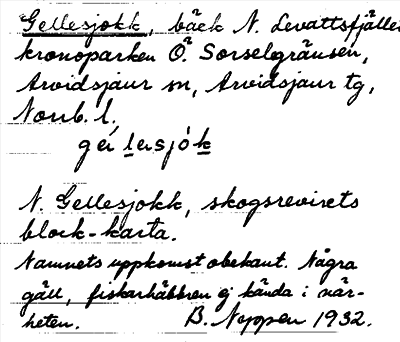 Gellesjokk, bäck N. Levattsfjället
kronoparken Ö. Sorselegränsen,
Arvidsjaur sn, Arvidsjaur tg,
Norrb. l.
N. Gellesjokk, skogsrevirets
block-karta.
Namnets uppkomst obekant. Några
gäll, fiskarhäbbren ej kända i när-
heten. B. Neppen 1932.